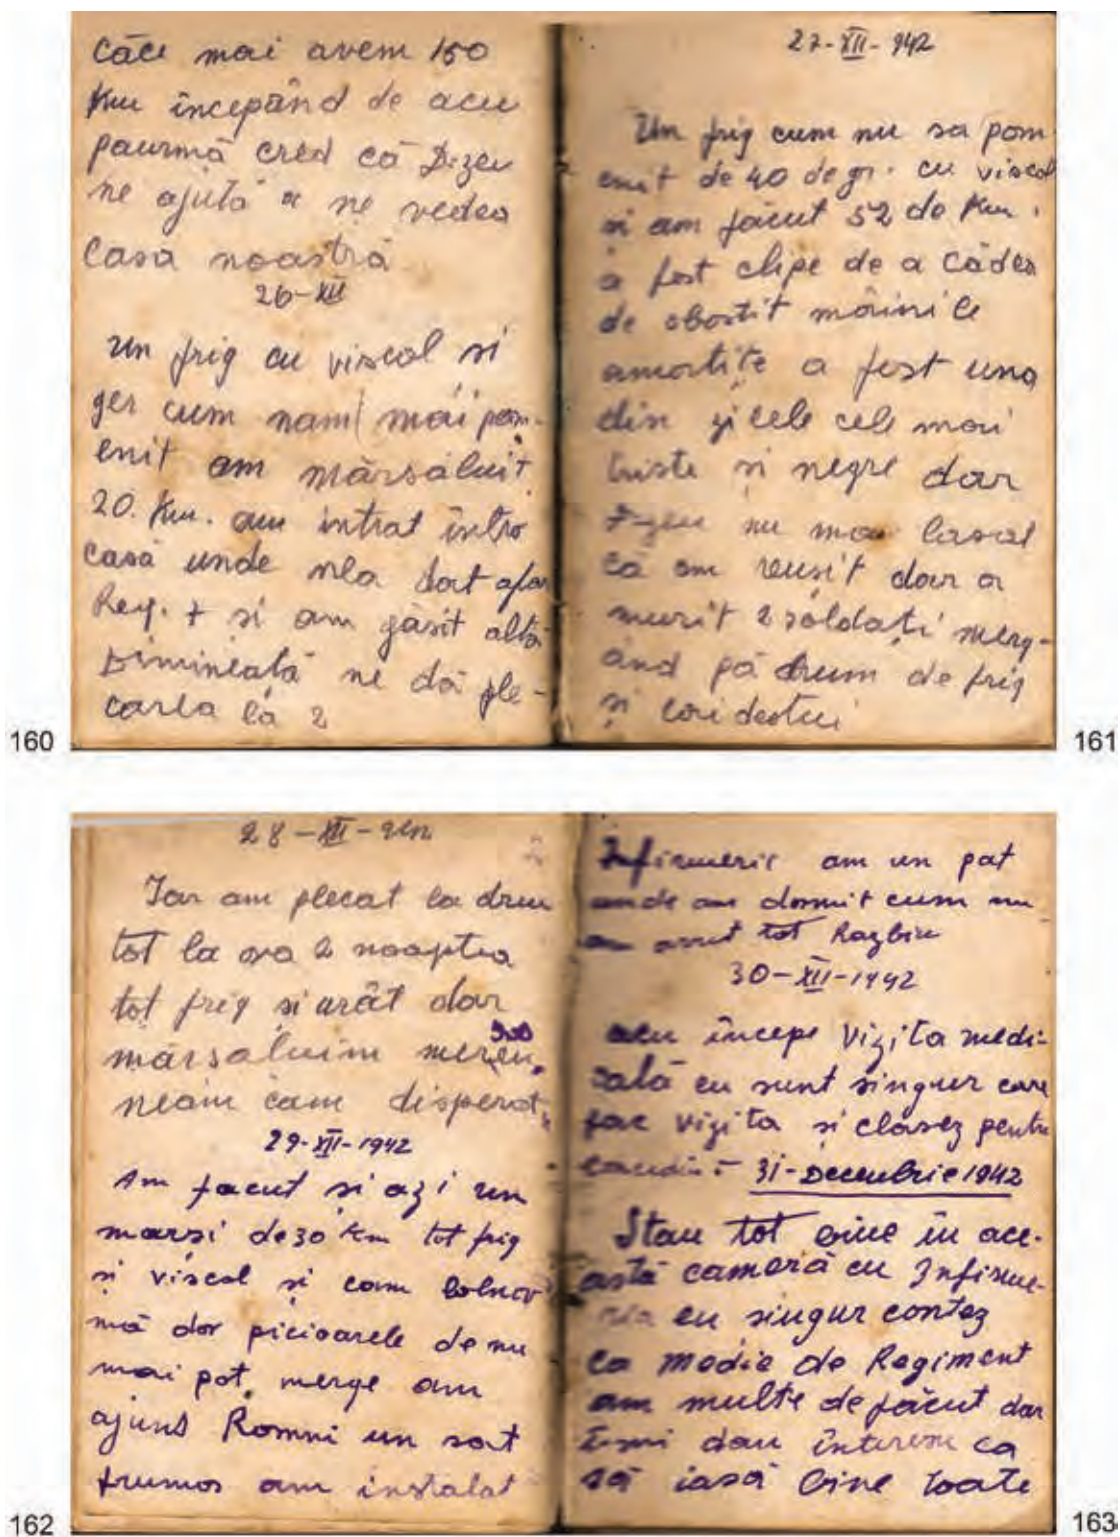 căci mai avem 150
Km începând de acu
paurmă cred că D-zeu
ne ajută a ne vedea
casa noastră
26-XII
Un frig cu viscol si
ger cum nam mai pom-
enit am mărsăluit
20. Km. am intrat intro
casă unde nea dat afar
Reg. 7 si am găsit altă
Dimineată ne dă ple-
carea la 2
160
27-XII-942
Un frig cum nu sa pom
enit de 40 de gr. cu viscol
si am făcut 52 de Km.
a fost clipe de a cădea
de obosit mâinile
amortite a fost una
din zilele cele mai
triste si negre dar
D-zeu nu ma lasat
că am reusit dar a
murit 2 soldati merg-
ând pă drum de frig
si
161
28-XII-942
Iar am plecat la drum
tot la ora 2 noaptea
tot frig si urât dar
mărsaluim mereu
neam cam disperat
29-XII-1942
Am facut si azi un
marsi de 30 Km tot frig
si viscol si cam bolnav
mă dor picioarele de nu
mai pot merge am
ajuns Romni un sat
frumos am instalat
162
Infirmerie am un pat
unde am dormit cum nu
am avut tot Razbiu
30-XII-1942
acu începe Vizita medi-
cală eu sunt singur care
fac vizita si clasez pentru
31-Decembrie 1942
Stau tot bine în ace-
astă cameră cu Infirme-
ria eu singur contez
ca Medic de Regiment
am multe de făcut dar
îmi dau interese ca
să iasă bine toate
163